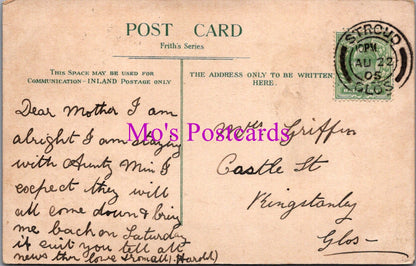 POST CARD
Frith's Series
THIS SPACE MAY BE USED FOR
COMMUNICATION – INLAND POSTAGE ONLY
THE ADDRESS ONLY TO BE WRITTEN
HERE.
STROUD
10PM
AU 22
05
GLOS
Dear Mother I am
alright I am staying
with Aunty Min I
expect they will
all come down & bring
me back on Saturday
if it suit you tell all
news then love from all (Harold)
Mrs Griffin
Castle St
Kingstanly
Glos -
Mo's Postcards